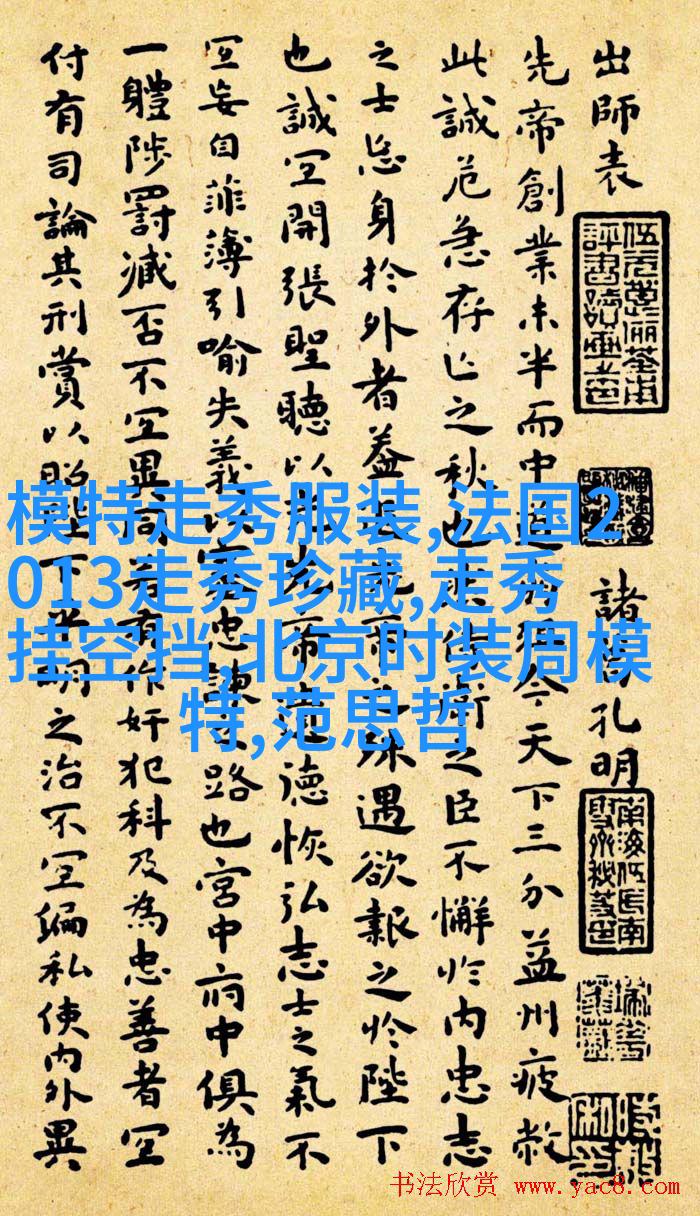 出師表
諸孔明
先帝創業未半而中今天下三分益州疲敝
此誠危急存亡之秋也之臣不懈於內忠志
之士忘身於外者蓋遇欲報之於陛下
也誠宜開張聖聽以德恢弘志士之氣不
宜妄自菲薄引喻失義路也宮中府中俱為
一體陟罰臧否不宜異同有作奸犯科及為忠善者宜
付有司論其刑賞以昭陛下明之治不宜偏私使內外異
模特走秀服装,法国2
013走秀珍藏,走秀
挂空挡,北京时装周模
特,范思哲
书法欣赏 www.yac8.com